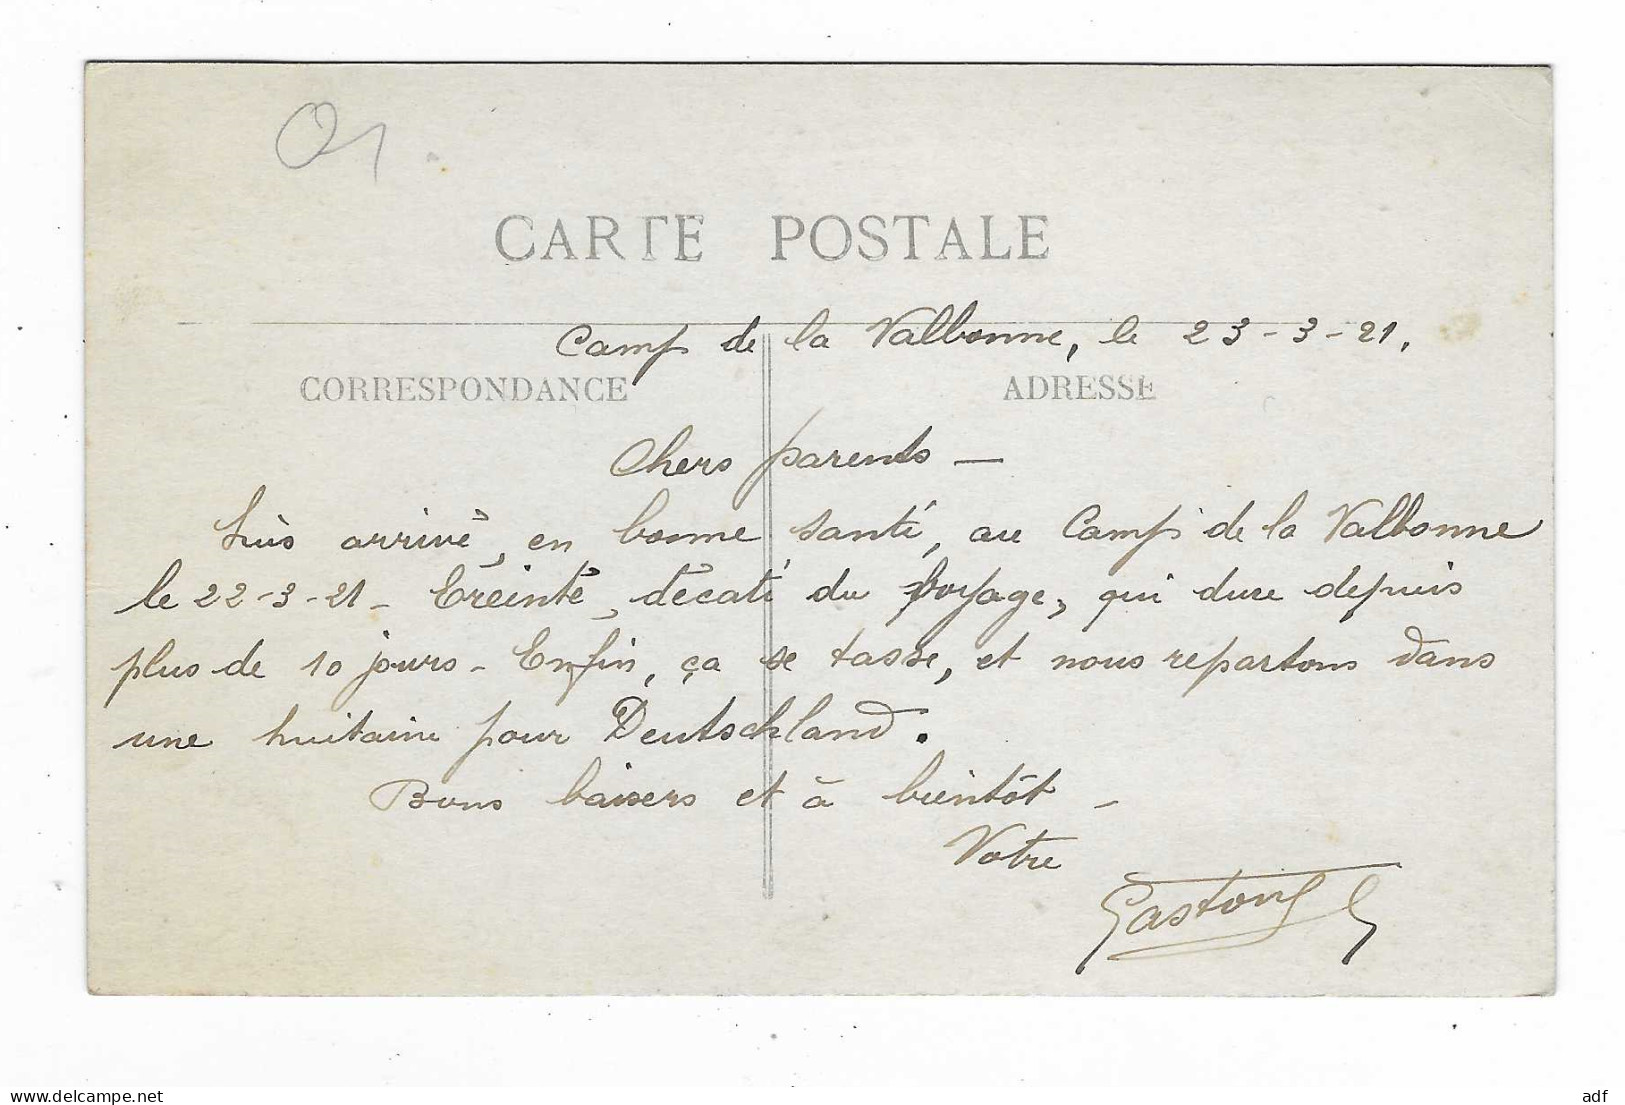 01
CARTE POSTALE
Camp de la Valbonne, le 23-3-21.
CORRESPONDANCE ADRESSE
Chers parents —
Suis arrivé, en bonne santé, au Camp de la Valbonne
le 22-3-21 - Éreinté, décati du voyage, qui dure depuis
plus de 10 jours - Enfin, ça se tasse, et nous repartons dans
une huitaine pour Deutschland.
Bons baisers et à bientôt -
Votre
Gaston
delcampe.net
adf